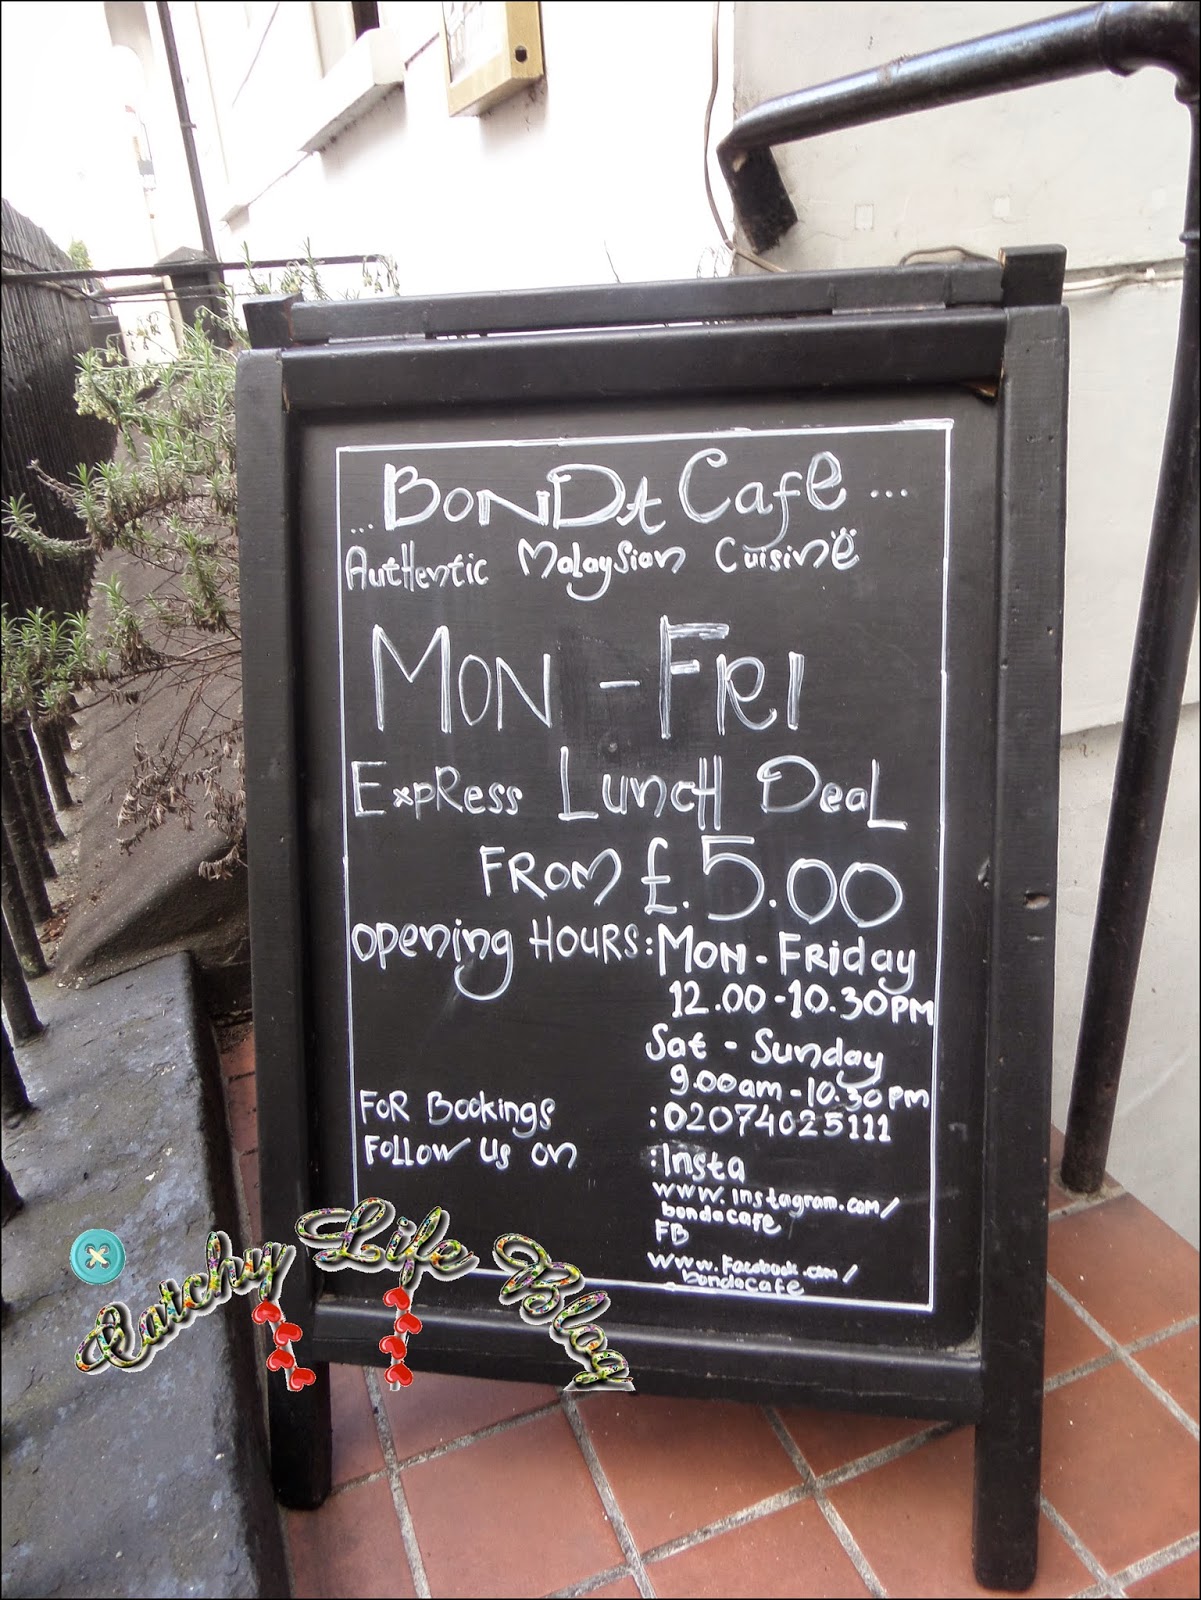 ... BONDA Cafe ...
Authentic Malaysian Cuisine
MON - FRI
Express Lunch Deal
FROM £.5.00
opening HOURS: MON - FRIday
12.00 - 10.30PM
Sat - Sunday
9.00am - 10.30pm
FOR Bookings :02074025111
Follow us on :Insta
www.instagram.com/
bondacafe
FB
www.Facebook.com/
bondacafe
Ratchy Life Blog